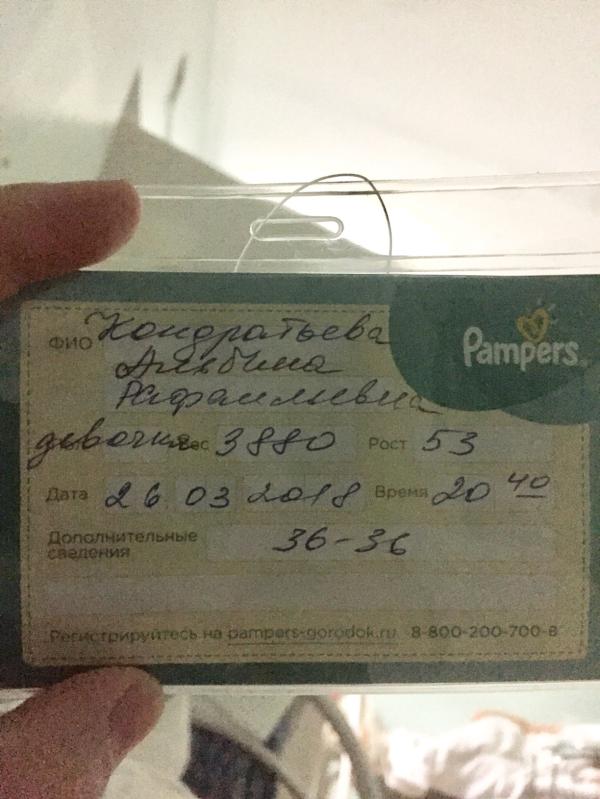 Pampers
ФИО Кондратьева
Альбина
Рафаильевна
девочка Вес 3880 Рост 53
Дата 26 03 2018 Время 20 40
Дополнительные
сведения 36-36
Регистрируйтесь на pampers-gorodok.ru 8-800-200-700-8